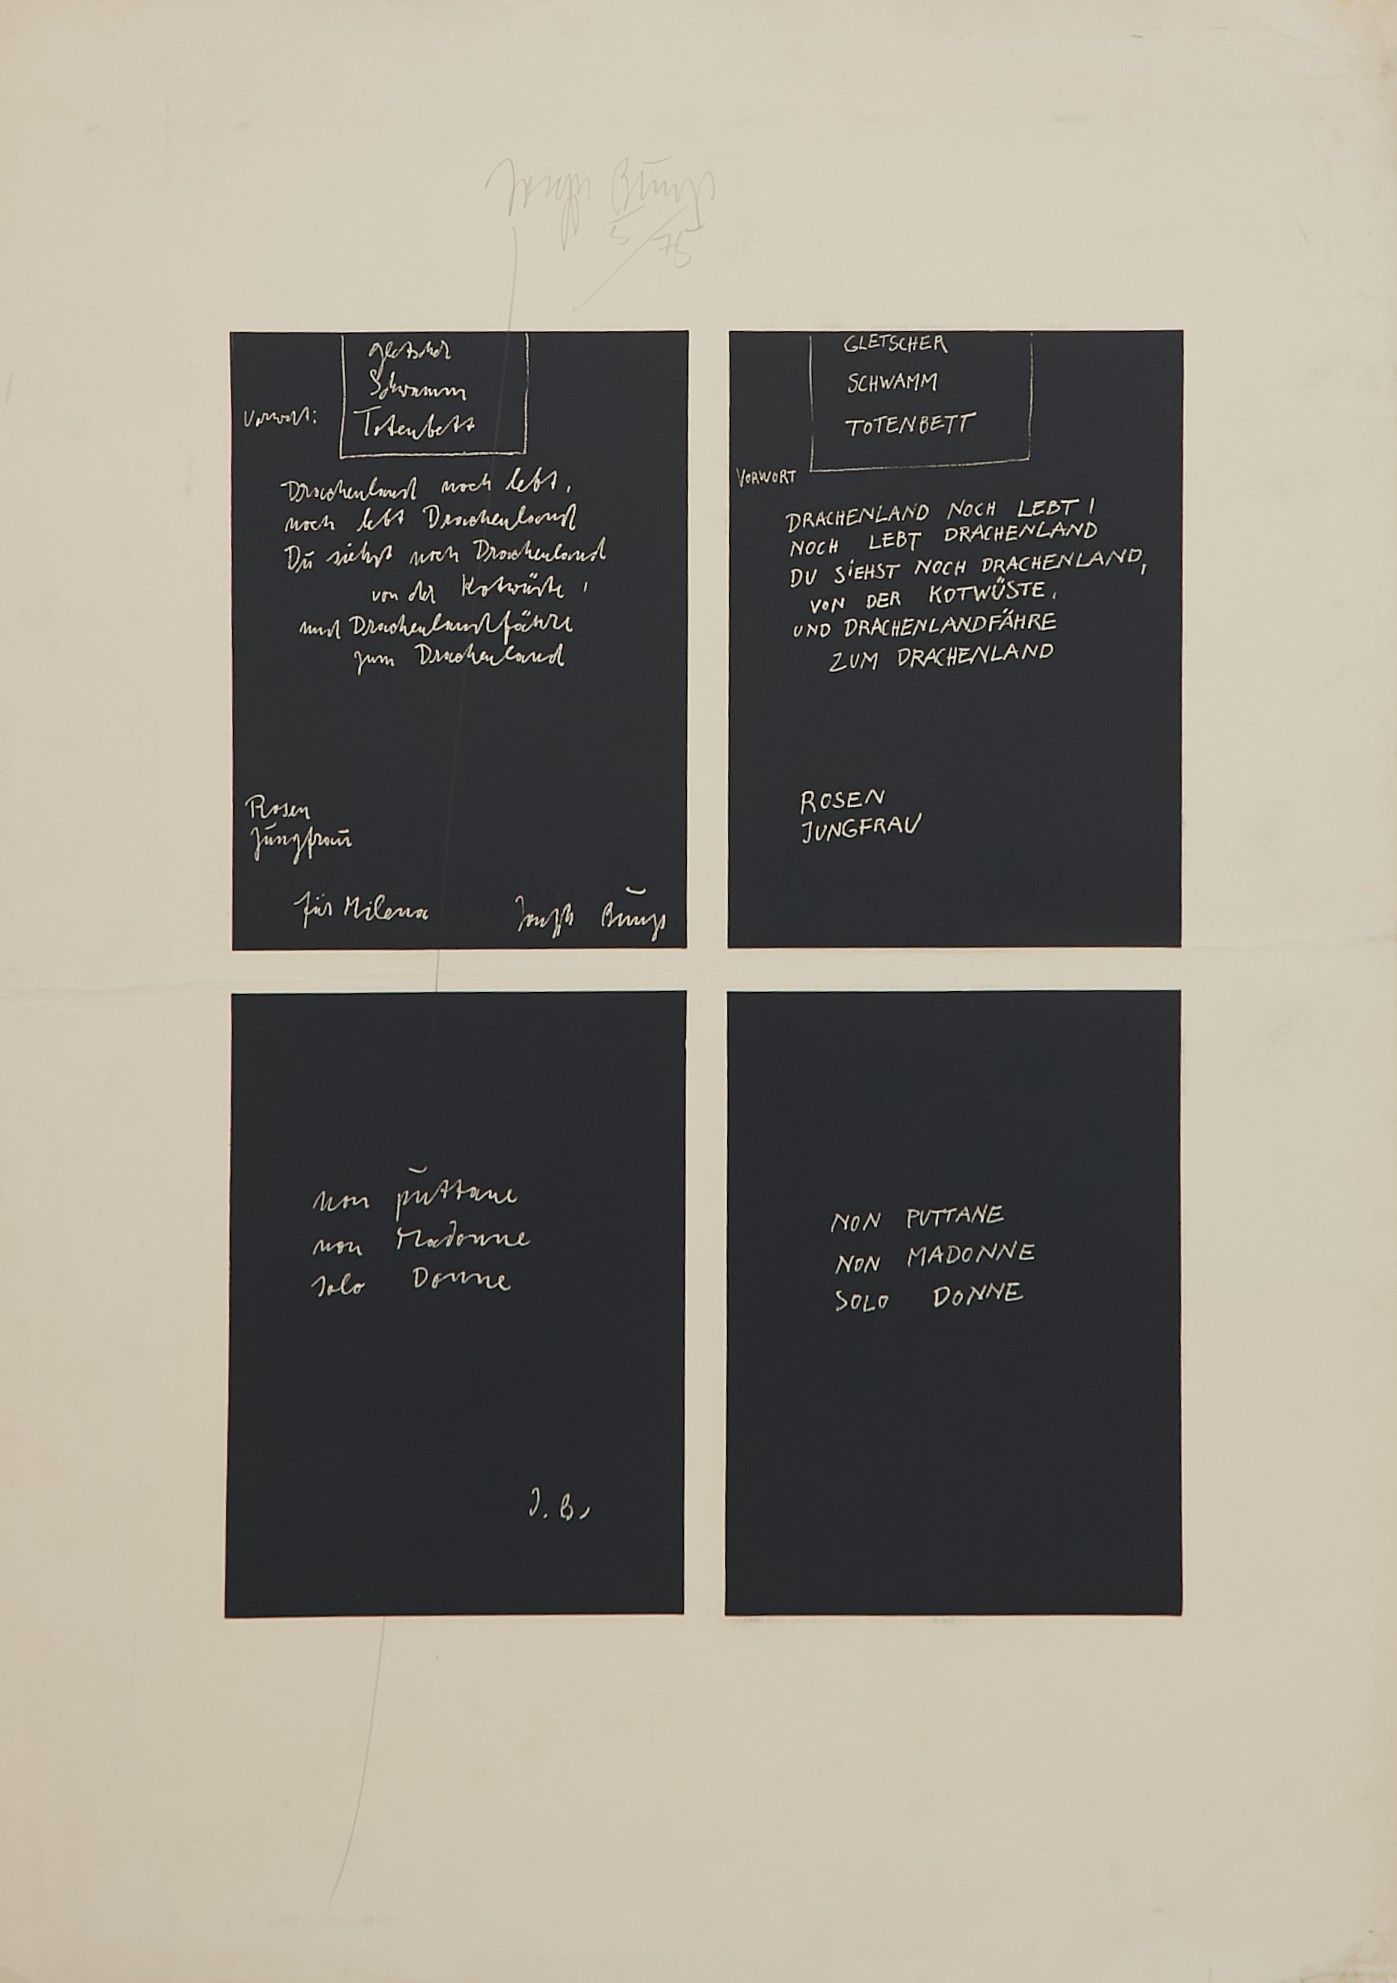 Joseph Beuys
5/75
gletscher
Schwamm
Vorwort:
Totenbett
Drachenland noch lebt,
noch lebt Drachenland
Du siehst noch Drachenland
von der Kotwüste,
und Drachenlandfähre
zum Drachenland
Rosen
Jungfrau
für Milena
Joseph Beuys
GLETSCHER
SCHWAMM
TOTENBETT
VORWORT
DRACHENLAND NOCH LEBT,
NOCH LEBT DRACHENLAND
DU SiEHST NOCH DRACHENLAND,
VON DER KOTWÜSTE,
UND DRACHENLANDFÄHRE
ZUM DRACHENLAND
ROSEN
JUNGFRAU
non puttane
non Madonne
solo Donne
J. B.
NON PUTTANE
NON MADONNE
SOLO DONNE